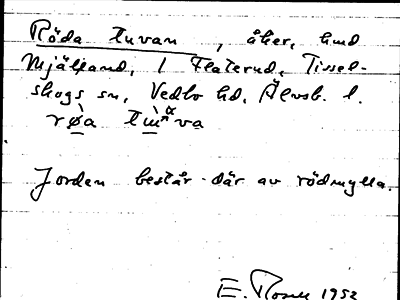 Röda tuvan, åker, hmd
Mjältand, 1 Flaterud, Tissel-
skogs sn, Vedbo hd, Älvsb. l.
røa
Jorden består där av rödmylla.
E. Rosell 1952